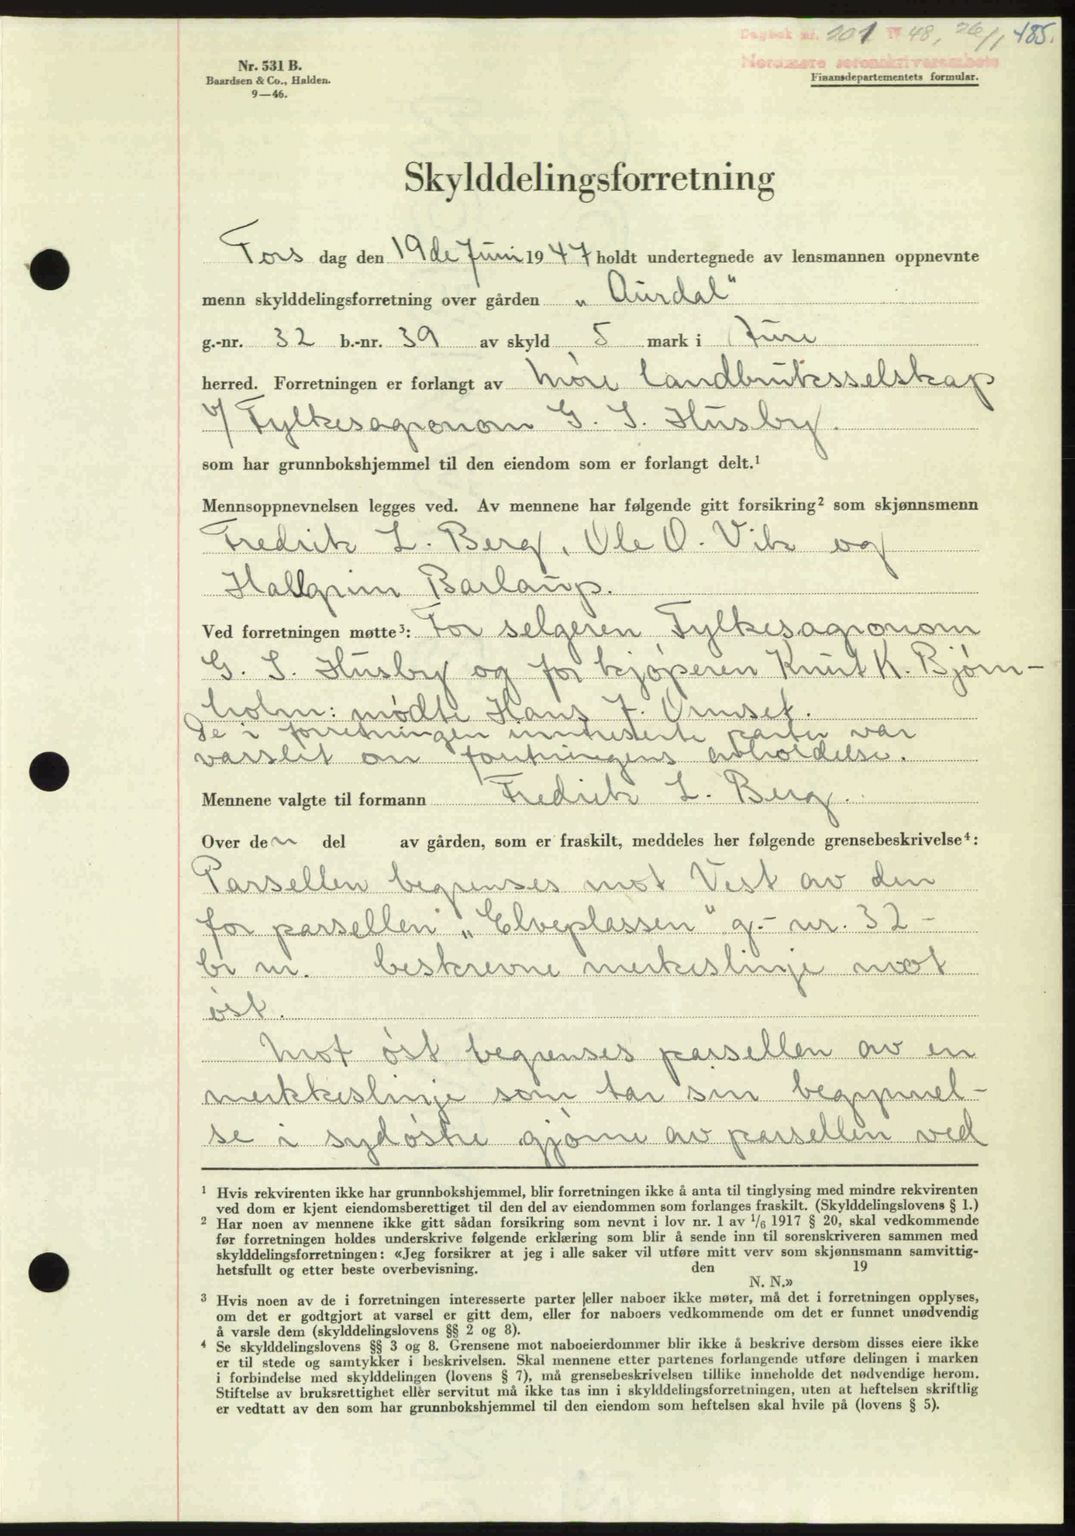 Dagbok nr. 201 19 48, 26/1 485.
Nordmøre sorenskriverembete
Nr. 531 B.
Baardsen & Co., Halden.
9—46.
Finansdepartementets formular.
Skylddelingsforretning
Tors dag den 19de Juni 1947 holdt undertegnede av lensmannen oppnevnte
menn skylddelingsforretning over gården „Aurdal"
g.-nr. 32 b.-nr. 39 av skyld 5 mark i Ture
herred. Forretningen er forlangt av Møre landbruksselskap
v/ Fylkesagronom G. S. Husby.
som har grunnbokshjemmel til den eiendom som er forlangt delt.¹
Mennsoppnevnelsen legges ved. Av mennene har følgende gitt forsikring² som skjønnsmenn
Fredrik L. Berg, Ole O. Vik og
Hallgrim Barlaup.
Ved forretningen møtte³: For selgeren Fylkesagronom
G. S. Husby og for kjøperen Knut K. Bjørn-
holm: mødte Hans J. Ormset.
De i forretningen interesserte parter var
varslet om forretningens avholdelse.
Mennene valgte til formann Fredrik L. Berg.
Over den del av gården, som er fraskilt, meddeles her følgende grensebeskrivelse⁴:
Parsellen begrenses mot Vest av den
for parsellen „Elveplassen" g.- nr. 32 -
br nr. beskrevne merkeslinje mot
øst.
Mot øst begrenses parsellen av en
merkkeslinje som tar sin begynnel-
se i sydøstre gjørne av parsellen ved
¹ Hvis rekvirenten ikke har grunnbokshjemmel, blir forretningen ikke å anta til tinglysing med mindre rekvirenten
ved dom er kjent eiendomsberettiget til den del av eiendommen som forlanges fraskilt. (Skylddelingslovens § 1.)
² Har noen av mennene ikke gitt sådan forsikring som nevnt i lov nr. 1 av 1/6 1917 § 20, skal vedkommende
før forretningen holdes underskrive følgende erklæring som blir å sende inn til sorenskriveren sammen med
skylddelingsforretningen: «Jeg forsikrer at jeg i alle saker vil utføre mitt verv som skjønnsmann samvittig-
hetsfullt og etter beste overbevisning. den 19
N. N.»
³ Hvis noen av de i forretningen interesserte parter eller naboer ikke møter, må det i forretningen opplyses,
om det er godtgjort at varsel er gitt dem, eller for naboers vedkommende om det er funnet unødvendig
å varsle dem (skylddelingslovens §§ 2 og 8).
⁴ Se skylddelingslovens §§ 3 og 8. Grensene mot naboeierdommer blir ikke å beskrive dersom disses eiere ikke
er til stede og samtykker i beskrivelsen. Skal mennene etter partenes forlangende utføre delingen i marken
i forbindelse med skylddelingen (lovens § 7), må grensebeskrivelsen tillike inneholde det nødvendige herom.
Stiftelse av bruksrettighet eller servitut må ikke tas inn i skylddelingsforretningen, uten at heftelsen skriftlig
er vedtatt av den som har grunnbokshjemmel til den eiendom som heftelsen skal hvile på (lovens § 5).